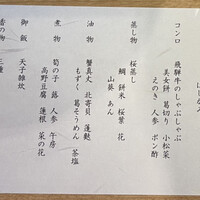 コンロ
飛騨牛のしゃぶしゃぶ
美女餅 葛切り 小松菜
えのき 人参 ポン酢
蒸し物
桜蒸し
鯛 餅米 桜葉 花
山葵 あん
油物
蟹真丈 北寄貝 蓮麩
もずく 葛そうめん 茶塩
煮物
筍の子 蕗 人参 牛蒡
高野豆腐 蓮根 菜の花
御飯
天子雑炊
香の物
三種